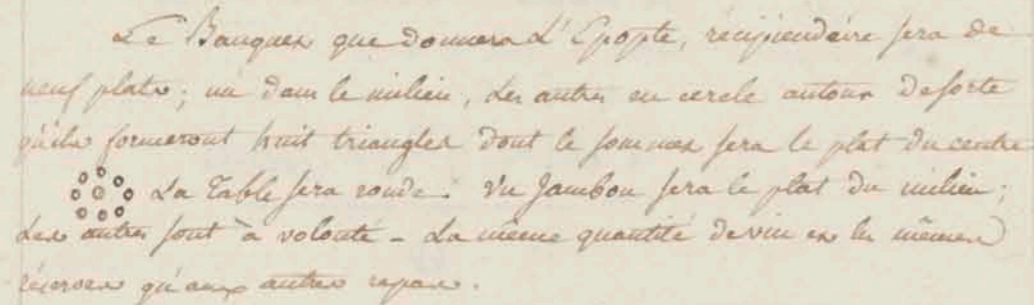 Le Banquet que donnera L'Epopte, récipiendaire sera de
neuf plats; un dans le milieu, les autres en cercle autour de sorte
qu'ils formeront huit triangles dont le sommet sera le plat du centre
La Table sera ronde. Un Jambon sera le plat du milieu;
Les autres sont à volonté - La même quantité de vin et les mêmes
réserves qu'aux autres repas.